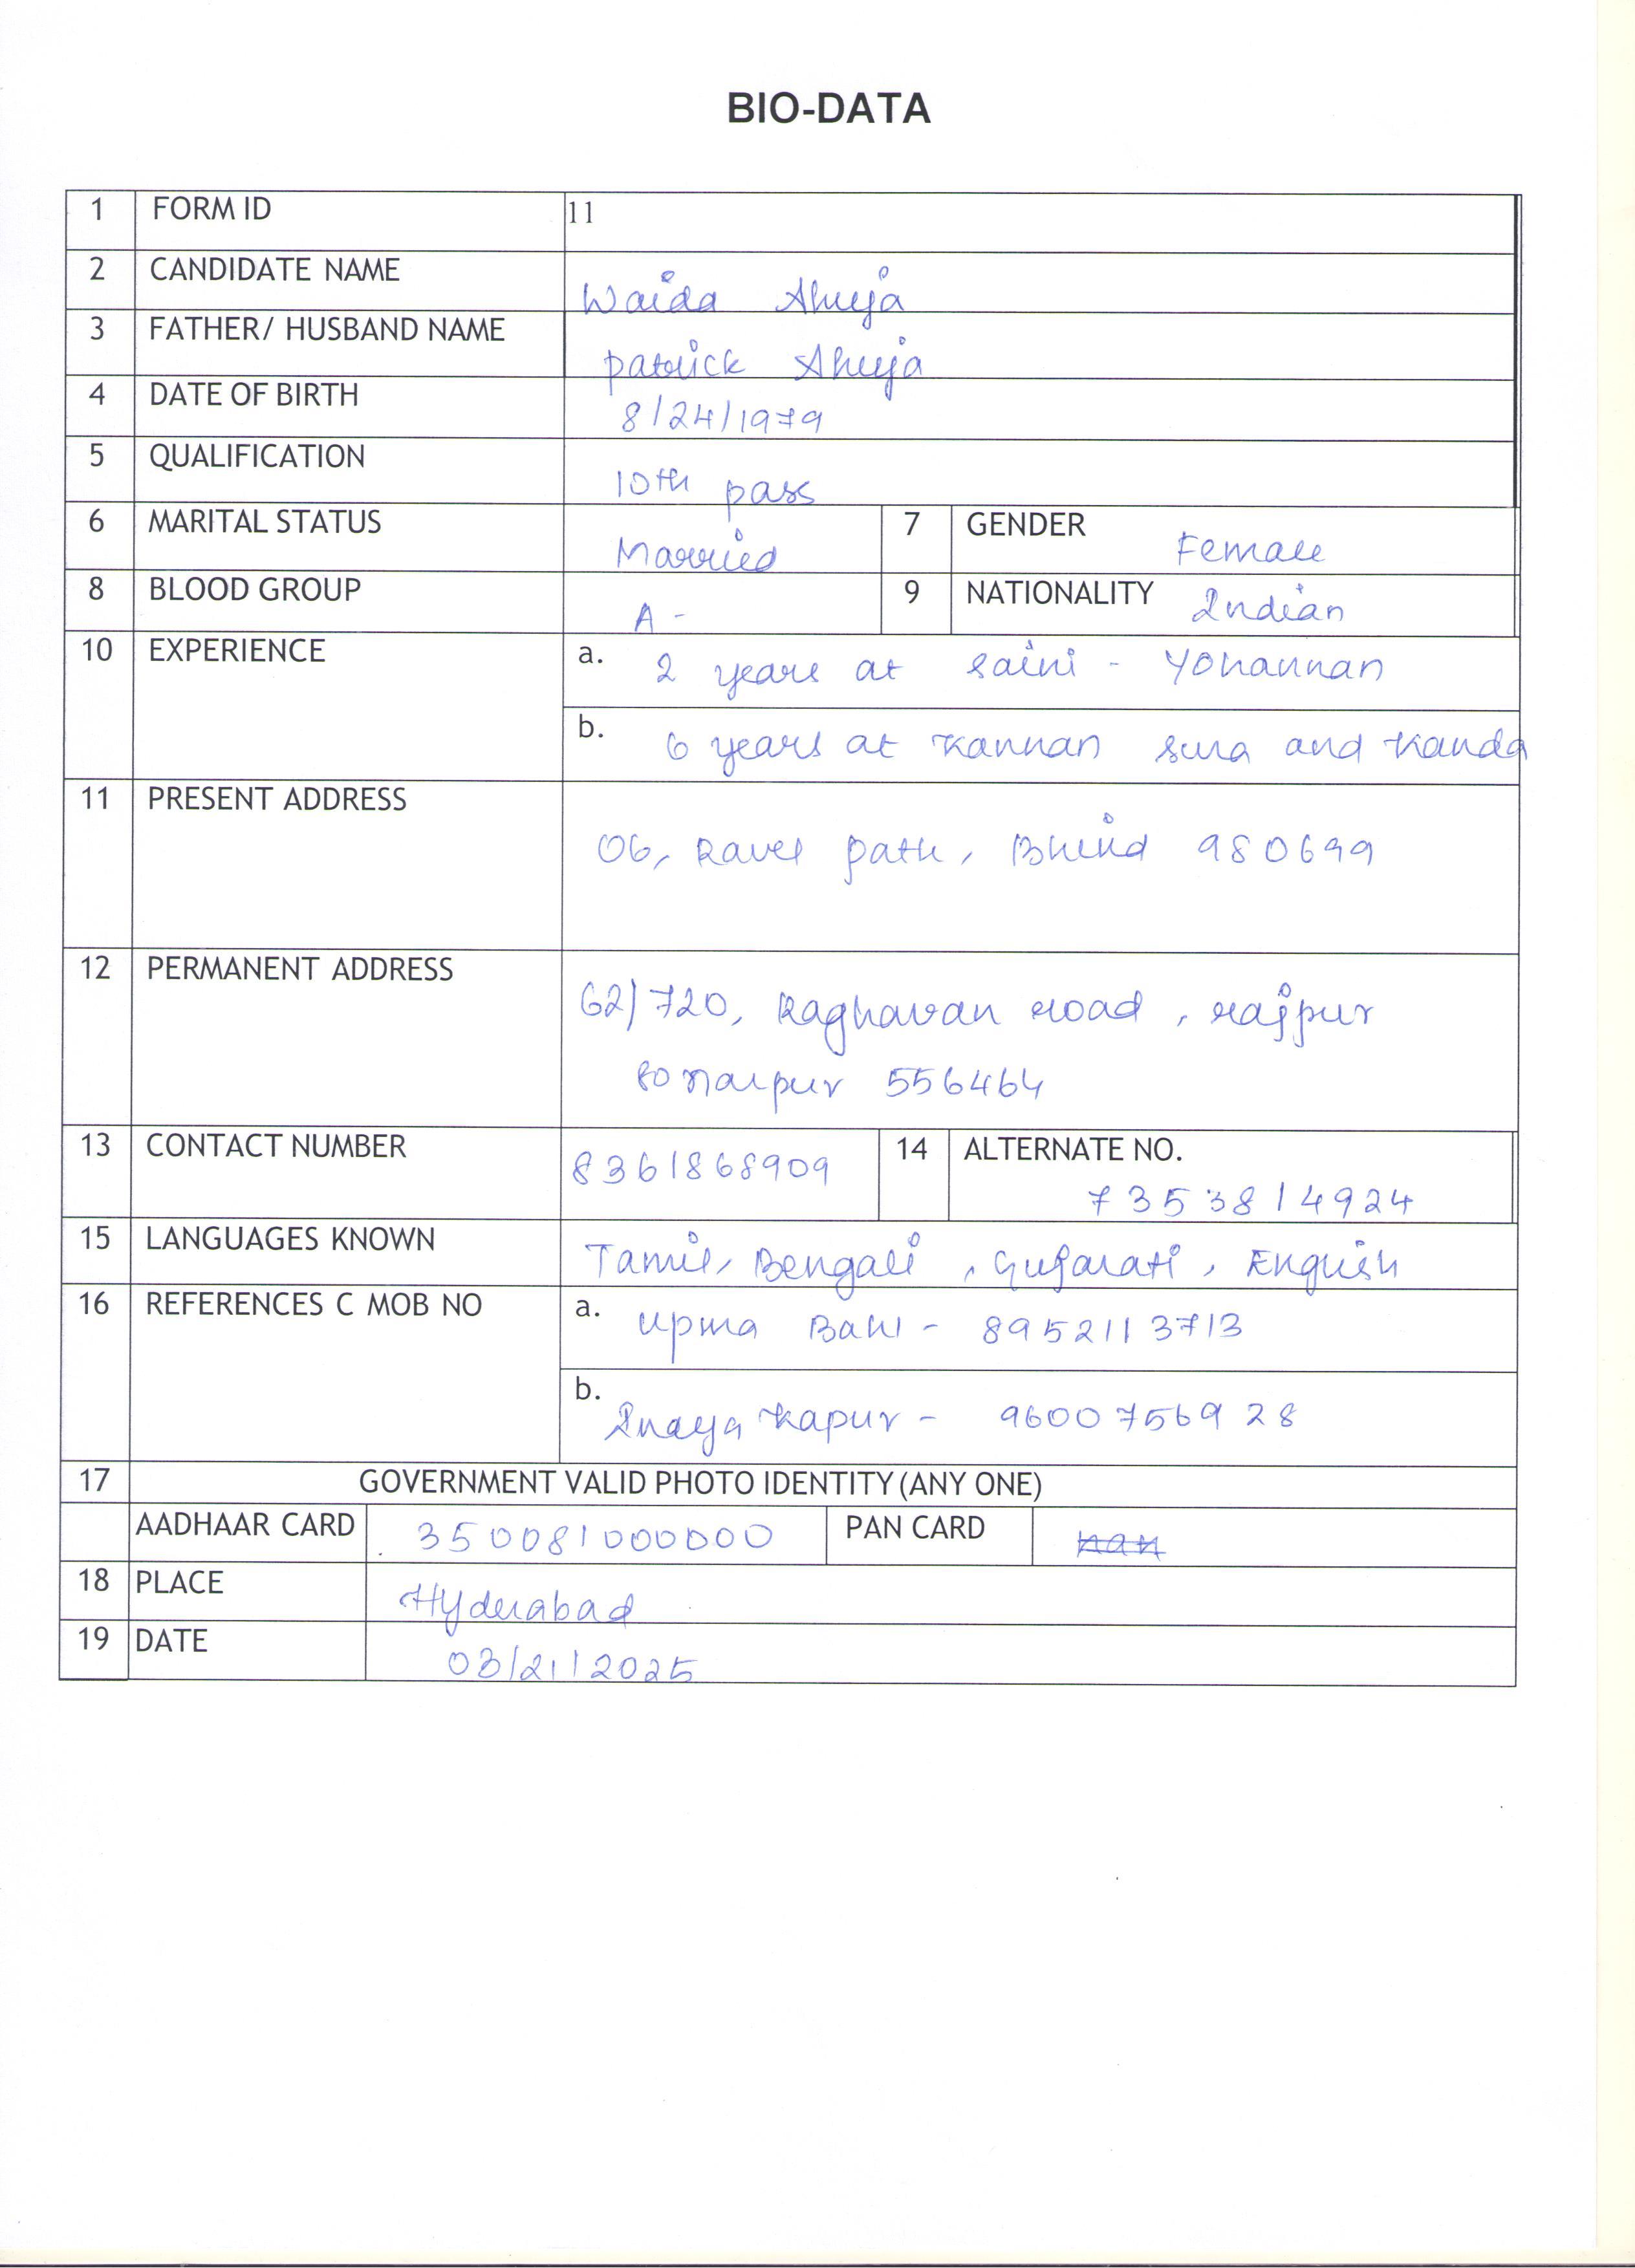 BIO-DATA
1 FORM ID 11
2 CANDIDATE NAME Waida Ahuja
3 FATHER/ HUSBAND NAME Patrick Ahuja
4 DATE OF BIRTH 8/24/1979
5 QUALIFICATION 10th pass
6 MARITAL STATUS Married 7 GENDER Female
8 BLOOD GROUP A- 9 NATIONALITY Indian
10 EXPERIENCE a. 2 years at saini - Yohannan
b. 6 years at Kannan sura and Kanda
11 PRESENT ADDRESS
06, Ravel path, Bhind 980699
12 PERMANENT ADDRESS
62/720, Raghavan road, rajpur
sonarpur 556464
13 CONTACT NUMBER 8361868909 14 ALTERNATE NO.
7353814924
15 LANGUAGES KNOWN Tamil, Bengali, Gujarati, English
16 REFERENCES C MOB NO a. Upma Bahl - 8952113713
b. Inaya Kapur - 9600756928
17 GOVERNMENT VALID PHOTO IDENTITY(ANY ONE)
AADHAAR CARD 350081000000 PAN CARD nan
18 PLACE Hyderabad
19 DATE 03/21/2025